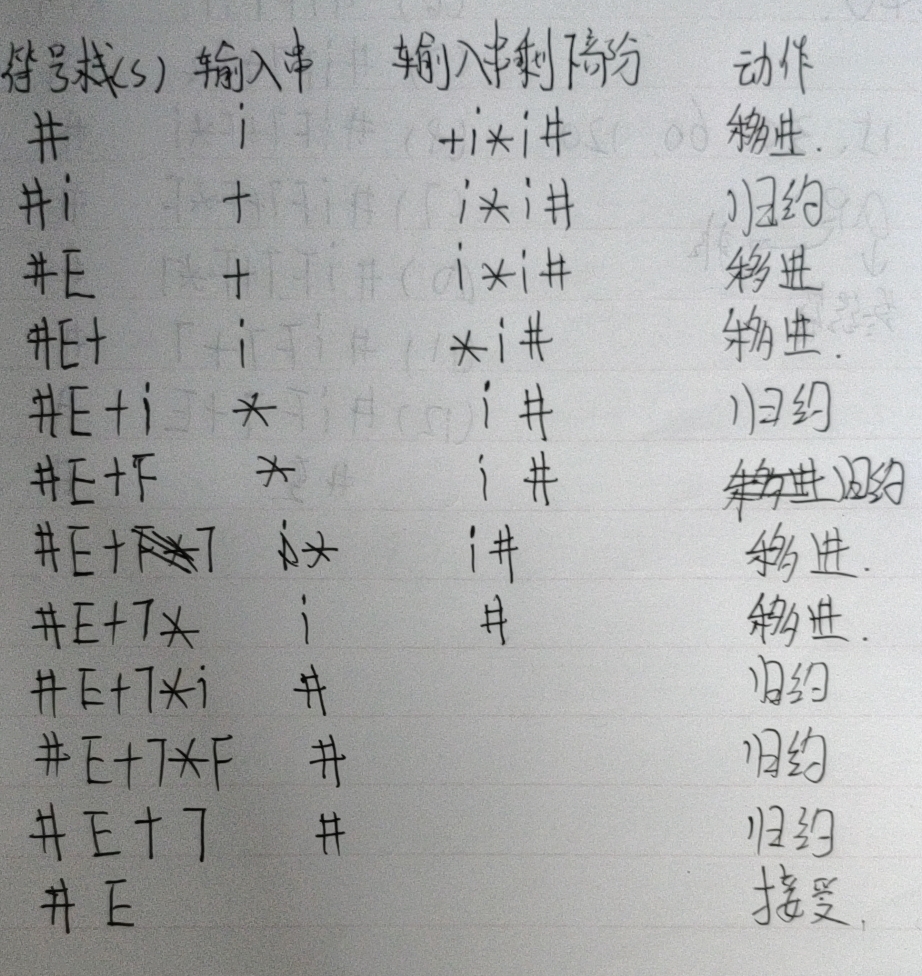 符号栈(S) 输入串 输入串剩下部分 动作
# i +i*i# 移进.
#i + i*i# 归约
#E + i*i# 移进
#E+ i *i# 移进.
#E+i * i# 归约
#E+F * i# 归约
#E+T * i# 移进.
#E+T* i # 移进.
#E+T*i # 归约
#E+T*F # 归约
#E+T # 归约
#E 接受.